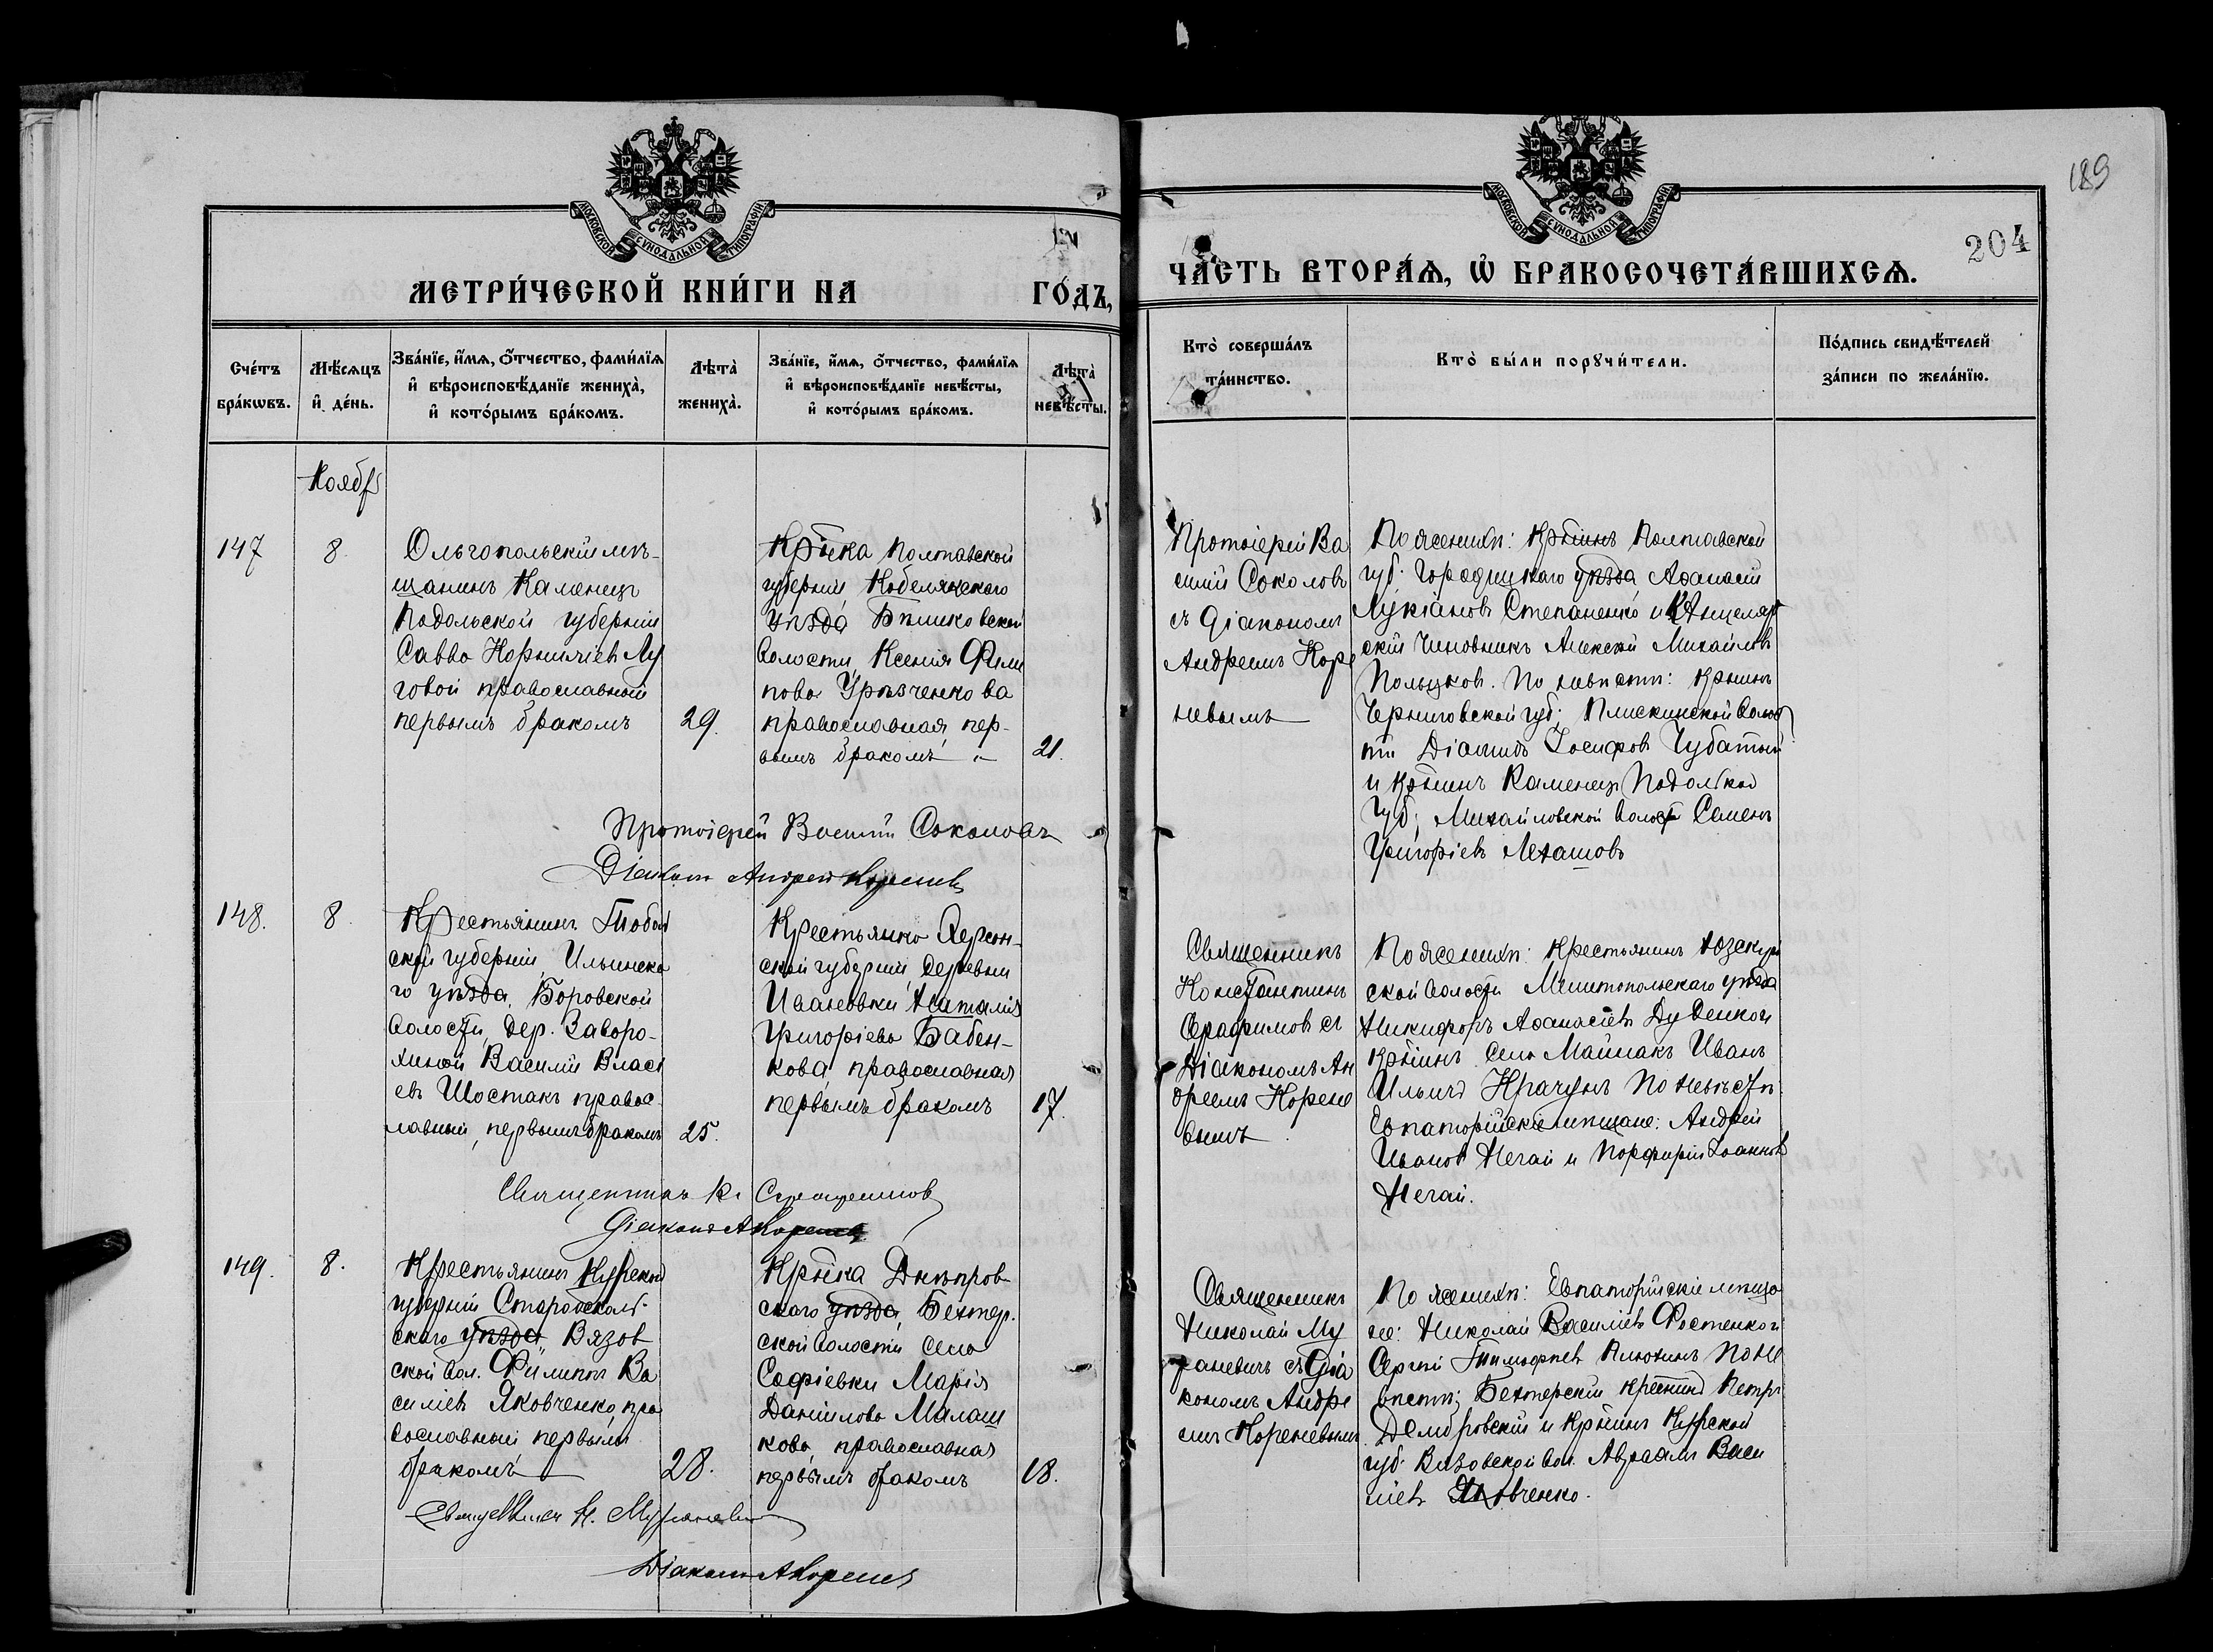 189
204
МОСКОВСКОЙ СУНОДАЛЬНОЙ ТИПОГРАФІИ
МЕТРИ́ЧЕСКОЙ КНИ́ГИ НА ГО́ДЪ,
Сче́тъ бра́кѡвъ.
Мѣ́сяцъ и҆ де́нь.
Зва́нїе, и҆́мя, ѻ҆́тчество, фами́лїя
и҆ вѣроисповѣ́данїе жениха̀,
и҆ кото́рымъ бра́комъ.
Лѣта̀ жениха̀.
Зва́нїе, и҆́мя, ѻ҆́тчество, фами́лїя
и҆ вѣроисповѣ́данїе невѣ́сты,
и҆ кото́рымъ бра́комъ.
Лѣта̀ невѣ́сты.
Ноябр
147
8.
Ольгопольскій мѣ-
щанинъ Каменец
Подольской губерніи
Савва Корниліев Лу
говой православный
первымъ бракомъ
29.
Кр҃нка Полтавской
губерніи Кобелякскаго
уѣзда
волости, Ксенія Фили
пова
православная, пер-
вымъ бракомъ
21.
Протоіерей Василій Соколовъ
Діаконъ Андрей Кореневъ
148.
8
Крестьянинъ Тобол
ской губерніи, Ишимска
го уѣзда, Боровской
волости, дер. Заворо-
хиной Василій Власі
евъ Шостакъ правос
лавный, первымъ бракомъ
25.
Крестьянка Херсон-
ской губерніи, деревни
Ивановки Наталія
Григоріева Бабен-
кова православная
первымъ бракомъ
17.
Священникъ К. Серафимовъ
Діаконъ А Кореневъ
149.
8.
Крестьянинъ Курской
губерніи Старооскол
скаго уѣзда, Вязов
ской вол. Филиппъ Ва
силіевъ Яковченко, пра
вославный первымъ
бракомъ
28.
Кр҃нка Днѣпров
скаго уѣзда, Бехтер.
ской волости села
Софіевки Марія
Даніилова Малаш
кова, православная
первымъ бракомъ
18.
Священникъ Н. Мураневичъ
Діаконъ А Кореневъ
МОСКОВСКОЙ СУНОДАЛЬНОЙ ТИПОГРАФІИ
ЧА́СТЬ ВТОРА́Я, Ѡ҆ БРАКОСОЧЕТА́ВШИХСЯ.
Кто̀ соверша́лъ
та́инство.
Кто̀ бы́ли порꙋчи́тели.
По́дпись свидѣ́телей
за́писи по жела́нїю.
Протоіерей Ва
силій Соколовъ
съ Діакономъ
Андреемъ Коре
невымъ
По женихѣ: Кр҃нинъ Полтавской
губ. уѣзда Афанасій
Лукіановъ Степаненко и Канцеляр
скій чиновникъ Алексѣй Михайловъ
Польцковъ. По невѣстѣ: Кр҃нинъ
Черниговской губ; Плискинской волос
ти Діамидъ Іосифовъ Чубатый
и Кр҃нинъ Каменец Подолской
Губ; Михайловской волости Семенъ
Григоріевъ
Священникъ
Константинъ
Серафимовъ съ
Діакономъ Ан
дреемъ Корене
вымъ
По женихѣ: Крестьянинъ
ской волости Мелитопольскаго уѣзда
Никифоръ Афанасіевъ Дуденко и
Кр҃нинъ села Майнакъ Иванъ
Ильичъ Крачунъ По невѣстѣ
Евпаторійскіе мѣщане: Андрей
Ивановъ Негай и Порфирій Іоанновъ
Негай.
Священникъ
Николай Му
раневичъ съ Діа
кономъ Андре
емъ Кореневымъ
По женихѣ: Евпаторійскіе мѣща
не: Николай Василіевъ Фостенко и
Сергій Тимофеев Плютинъ По не
вѣстѣ; Бехтерскій кр҃нинъ Петръ
Домбровскій и Кр҃нинъ Курской
губ. Вязовской вол. Авраамъ Васи
ліевъ Яковченко.